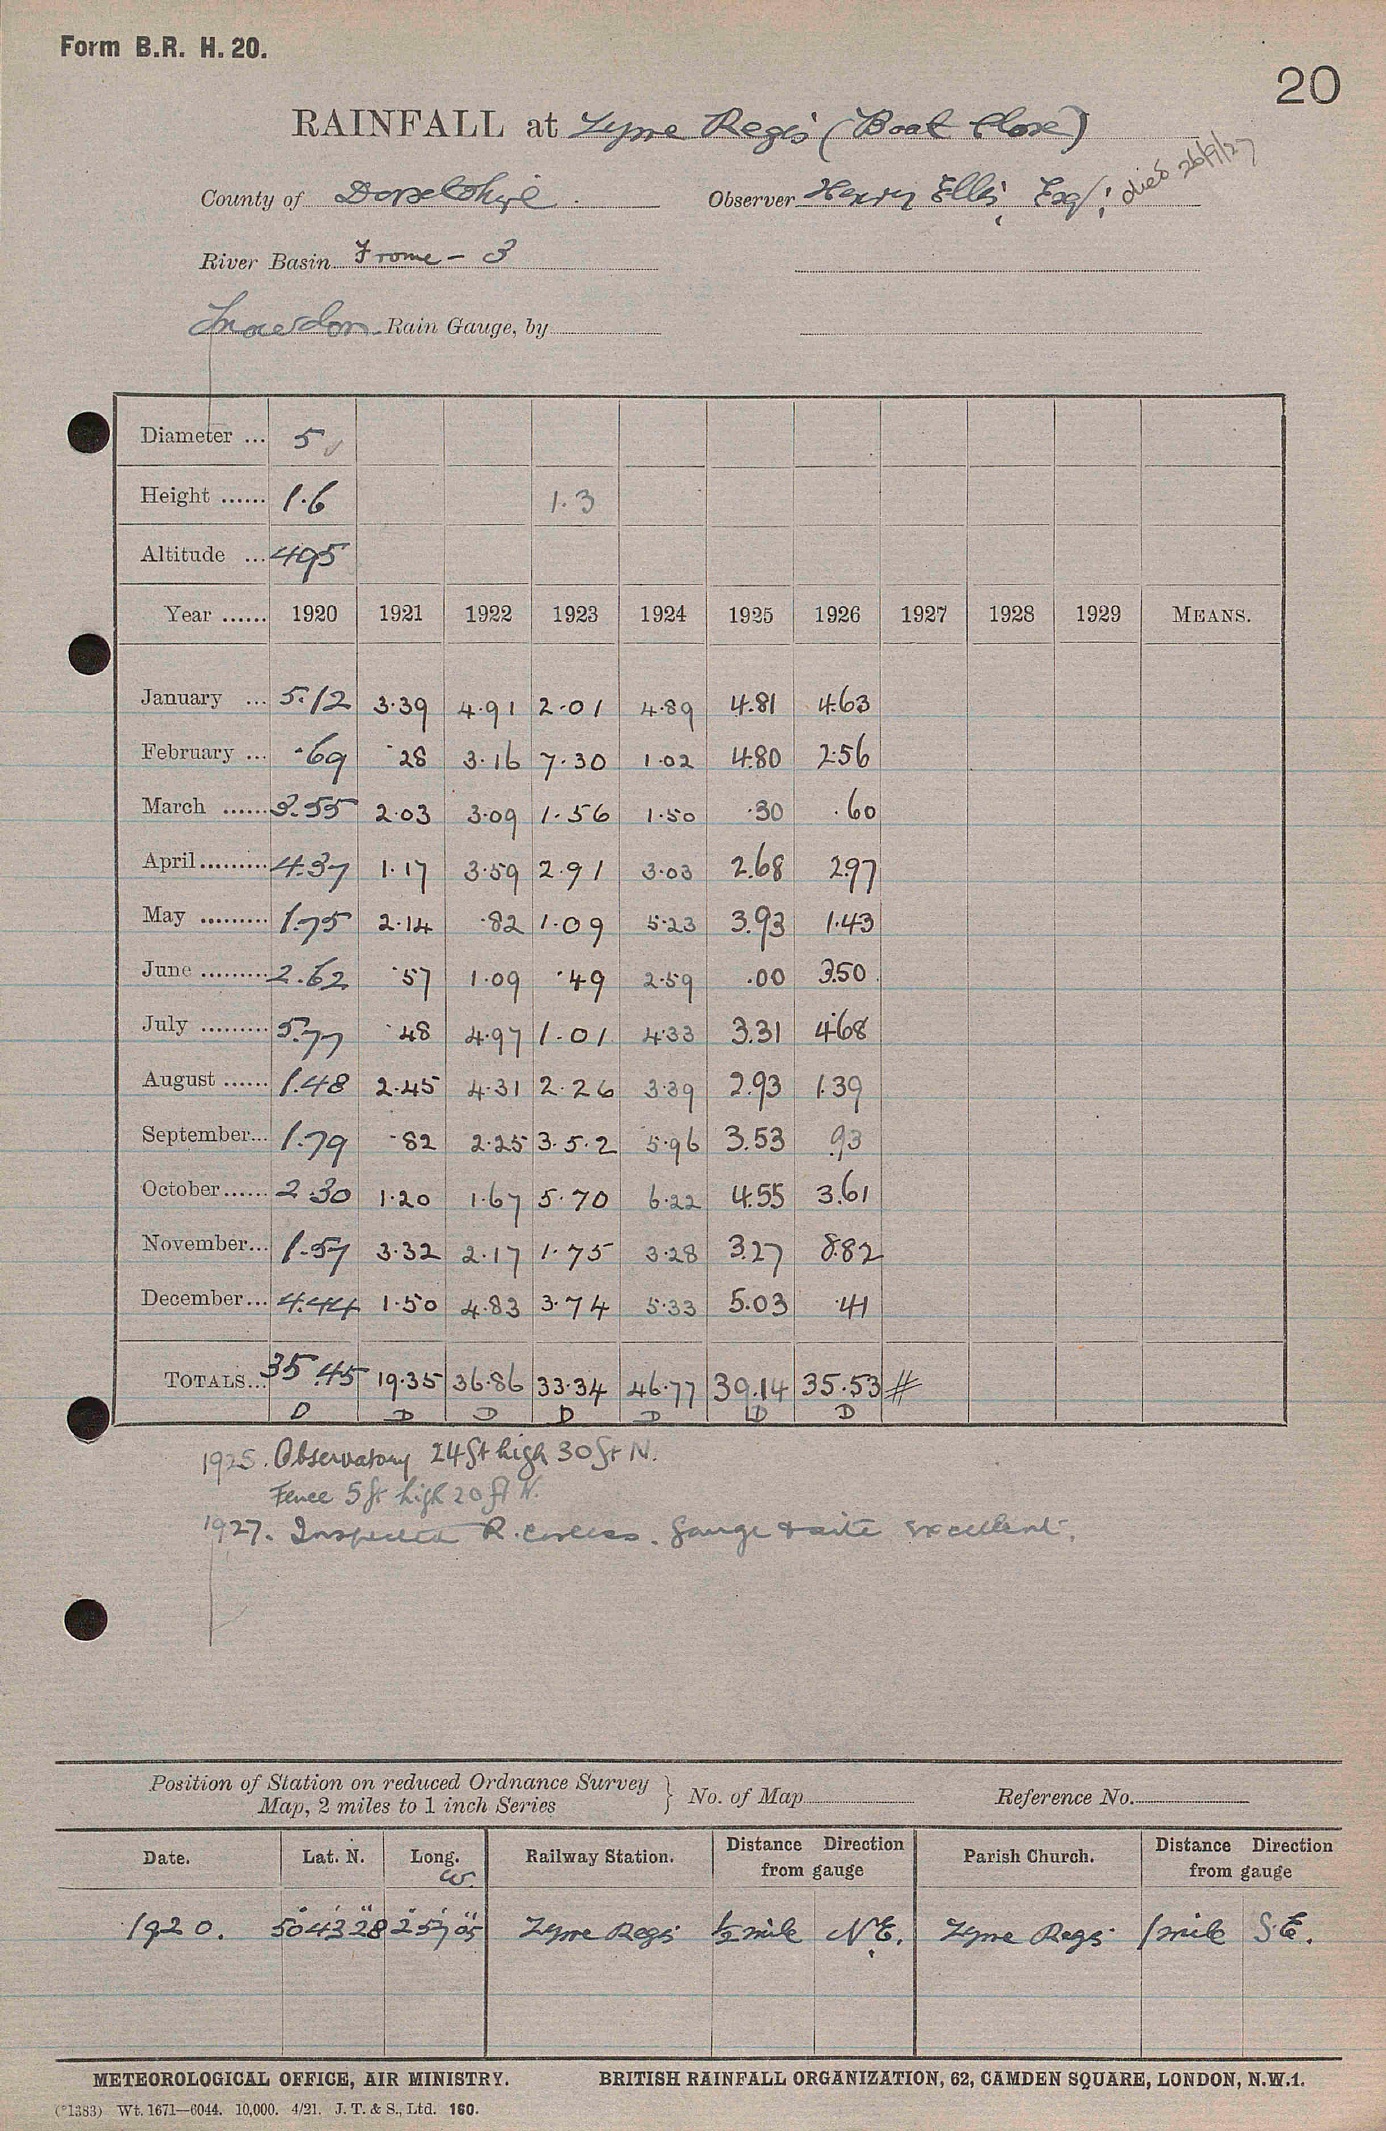 Form B.R. H. 20.
20
RAINFALL at Lyme Regis (Boat Close)
County of Dorsetshire. Observer Henry Ellis, Esq; died 26/9/27
River Basin Frome - 3
Snowdon Rain Gauge, by
Diameter ... 5
Height ...... 1.6 1.3
Altitude ... 495
Year ...... 1920 1921 1922 1923 1924 1925 1926 1927 1928 1929 MEANS.
January ... 5.12 3.39 4.91 2.01 4.89 4.81 4.63
February ... .69 .28 3.16 7.30 1.02 4.80 2.56
March ...... 3.55 2.03 3.09 1.56 1.50 .30 .60
April ......... 4.37 1.17 3.59 2.91 3.03 2.68 2.97
May ......... 1.75 2.14 .82 1.09 5.23 3.93 1.43
June ......... 2.62 .57 1.09 .49 2.59 .00 3.50
July ......... 5.77 .48 4.97 1.01 4.33 3.31 4.68
August ...... 1.48 2.45 4.31 2.26 3.39 2.93 1.39
September... 1.79 .82 2.25 3.52 5.96 3.53 .93
October...... 2.30 1.20 1.67 5.70 6.22 4.55 3.61
November... 1.57 3.32 2.17 1.75 3.28 3.27 8.82
December... 4.44 1.50 4.83 3.74 5.33 5.03 .41
TOTALS... 35.45 19.35 36.86 33.34 46.77 39.14 35.53 #
D D D D D D D
1925. Observatory 24 ft high 30 ft N.
Fence 5 ft high 20 ft N.
1927. Inspected R. Corless. Gauge & site excellent.
Position of Station on reduced Ordnance Survey
Map, 2 miles to 1 inch Series } No. of Map Reference No.
Date. Lat. N. Long. W. Railway Station. Distance Direction from gauge Parish Church. Distance Direction from gauge
1920. 50° 43' 28" 2° 57' 05" Lyme Regis ½ mile N.E. Lyme Regis 1 mile S.E.
METEOROLOGICAL OFFICE, AIR MINISTRY. BRITISH RAINFALL ORGANIZATION, 62, CAMDEN SQUARE, LONDON, N.W.1.
(*1383) Wt. 1671—6044. 10,000. 4/21. J. T. & S., Ltd. 160.